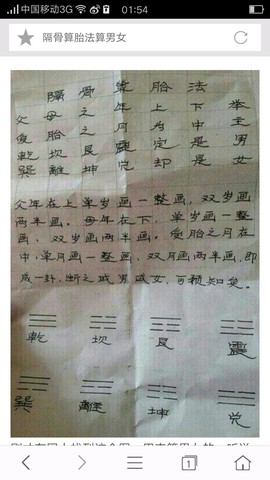 中国移动3G 01:54
隔骨算胎法算男女
隔骨算胎法
父母之年上下举
受胎之月为中主
乾坎艮震定是男
巽離坤兑却是女
父年在上单岁画一整画，双岁画
两半画。母年在下，单岁画一整
画，双岁画两半画。受胎之月在
中，单月画一整画，双月画两半画，即
成一卦，断之或男或女，可预知矣。
乾 坎 艮 震
巽 離 坤 兑
1